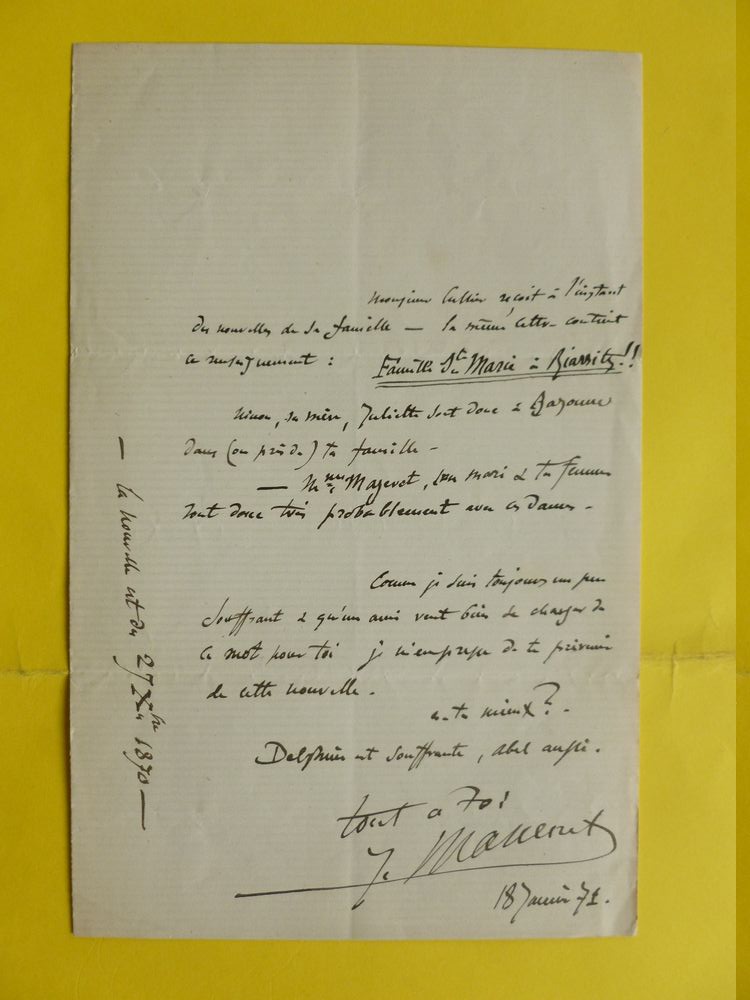 Monsieur Cullier reçoit à l'instant
des nouvelles de sa famille — la même lettre contient
ce renseignement : Famille Ste Marie à Biarritz!!
Ninon, sa mère, Juliette sont donc à Bayonne
dans (ou près de) ta famille —
— Mme Mayeret, son mari & ta femme
sont donc très probablement avec ces dames —
Comme je suis toujours un peu
souffrant & qu'un ami veut bien se charger de
ce mot pour toi je m'empresse de te prévenir
de cette nouvelle.
es-tu mieux? —
Delphine est souffrante, Abel aussi.
tout à Toi
J. Massenet
18 Janvier 71.
— la nouvelle est du 27 Xbre 1870 —